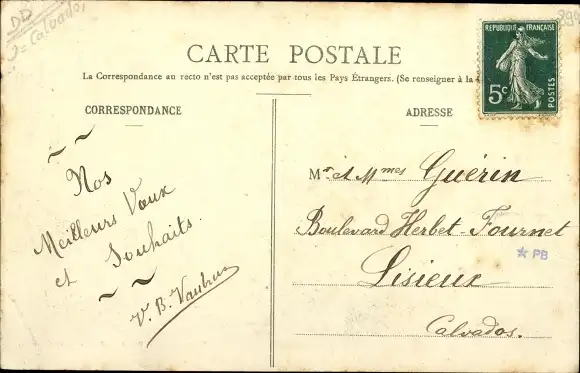 DD
J= Calvados
CARTE POSTALE
La Correspondance au recto n'est pas acceptée par tous les Pays Étrangers. (Se renseigner à la
REPUBLIQUE FRANÇAISE
5c
POSTES
CORRESPONDANCE
ADRESSE
~ ~
Nos
Meilleurs Vœux
et Souhaits.
~ ~
V. B.
Mr et Mmes Guérin
Boulevard Herbet-Fournet
Lisieux
PB
Calvados.